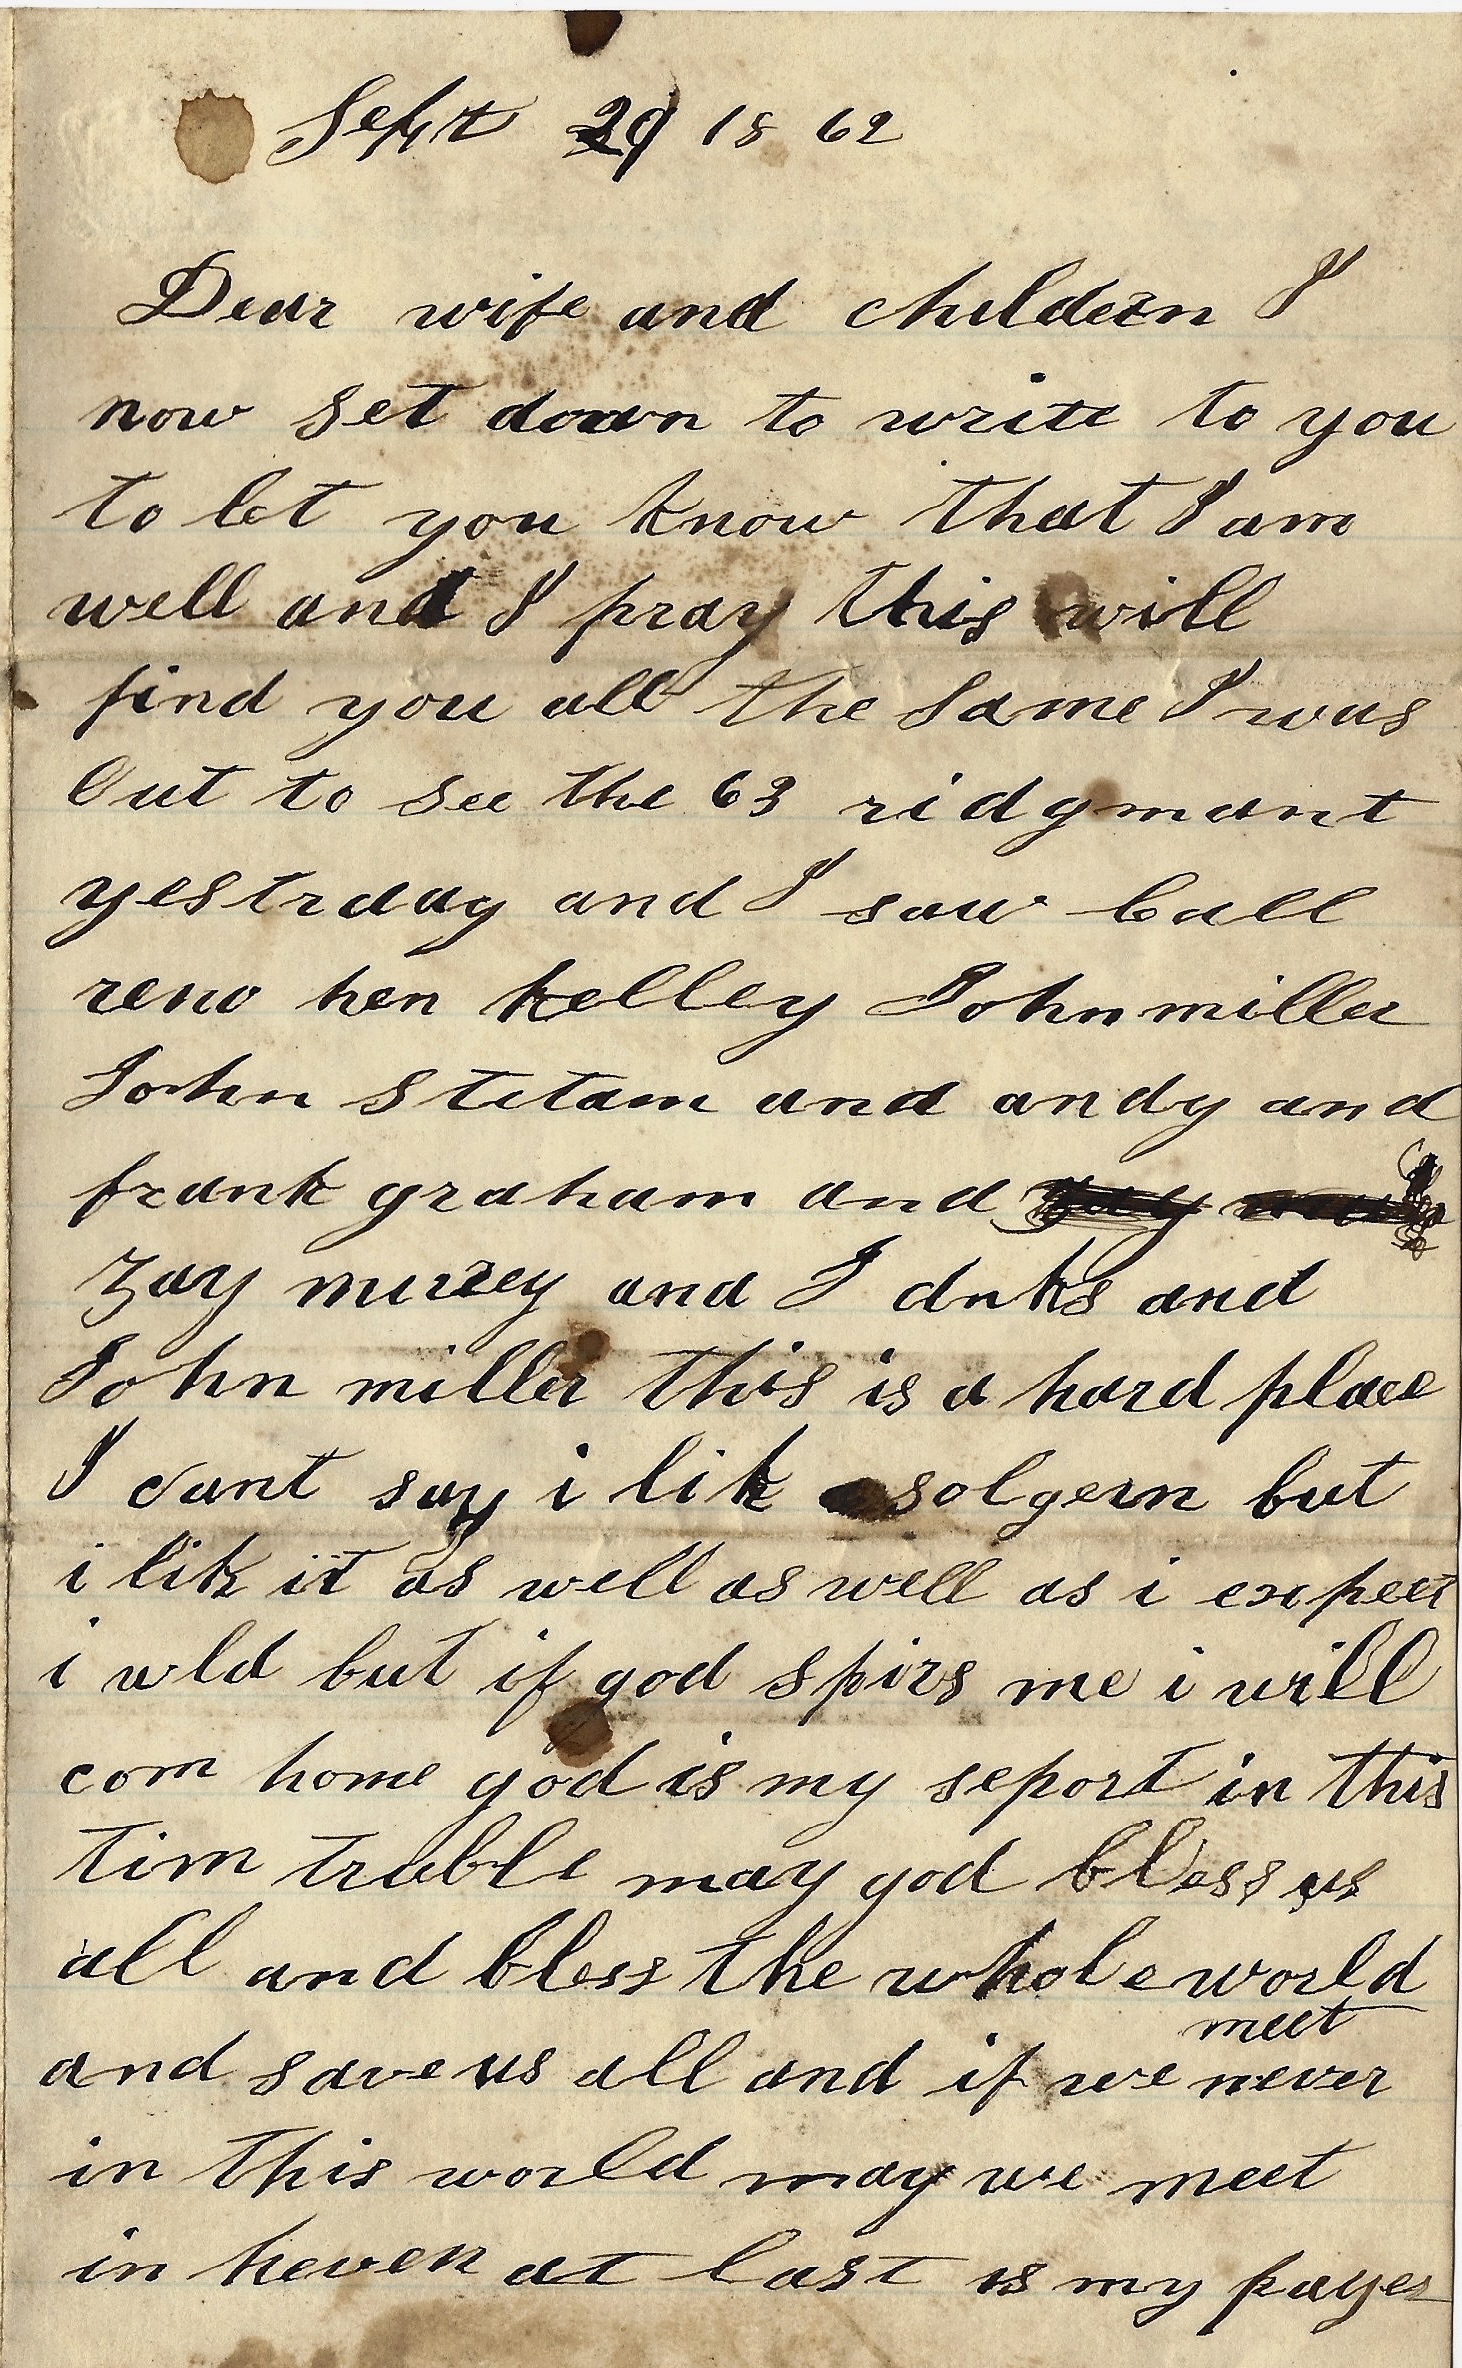 Sept 29 1862
Dear wife and childern I
now set down to write to you
to let you know that I am
well and I pray this will
find you all the same I was
out to see the 63 ridgmant
yestrday and I saw ball
reno hen kelley John miller
John Stetam and andy and
frank graham and
zay murrey and J dnks and
John miller this is a hard place
I cant say i lik solgern but
i lik it as well as well as i expect
i wld but if god spirs me i will
com home god is my seport in this
tim truble may god bless us
all and bless the whole world
meet
and save us all and if we never
in this world may we meet
in heven at last is my payer